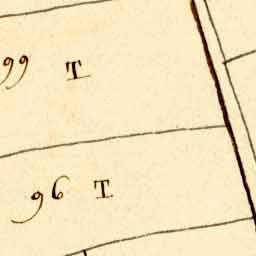 99 T
96 T